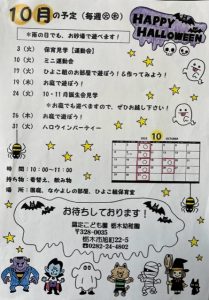 10月の予定(毎週㊋㊍)
HAPPY
HALLOWEEN
※雨の日でも、お砂場で遊べます!
3 (火) 保育見学【運動会】
10 (火) ミニ運動会
17 (火) ひよこ組のお部屋で遊ぼう!&作ってみよう!
19 (木) お庭で遊ぼう!
24 (火) 10・11月誕生会見学
※お庭でも遊べますので、ぜひお越し下さい!
26 (木) お庭で遊ぼう!
31 (火) ハロウィンパーティー
2023 10 OCTOBER
時間:10:00~11:00
持ち物:着替え、飲み物
場所:園庭、なかよしの部屋、ひよこ組保育室
お待ちしております!
認定こども園 栃木幼稚園
〒328-0035
栃木市旭町22-5
☎0282-24-4802